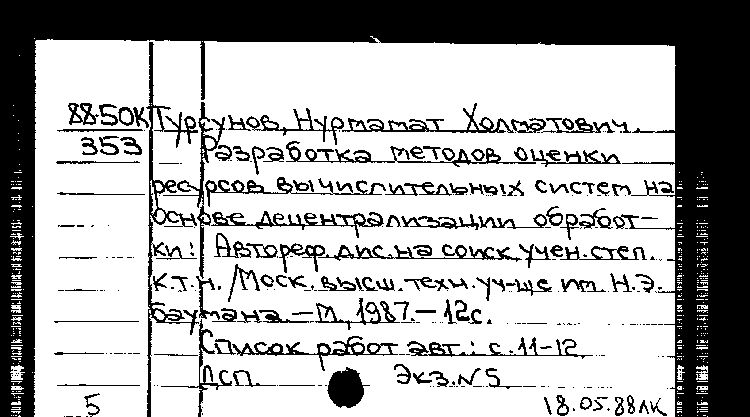 88-50К Турсунов, Нурмамат Холматович.
353 Разработка методов оценки
ресурсов вычислительных систем на
основе децентрализации обработ-
ки: Автореф. дис. на соиск. учен. степ.
к.т.н. /Моск. высш. техн. уч-ще им. Н.Э.
Баумана. – М., 1987. – 12с.
Список работ авт.: с. 11-12.
ДСП. Экз. N 5.
5 18.05.88 ЛК